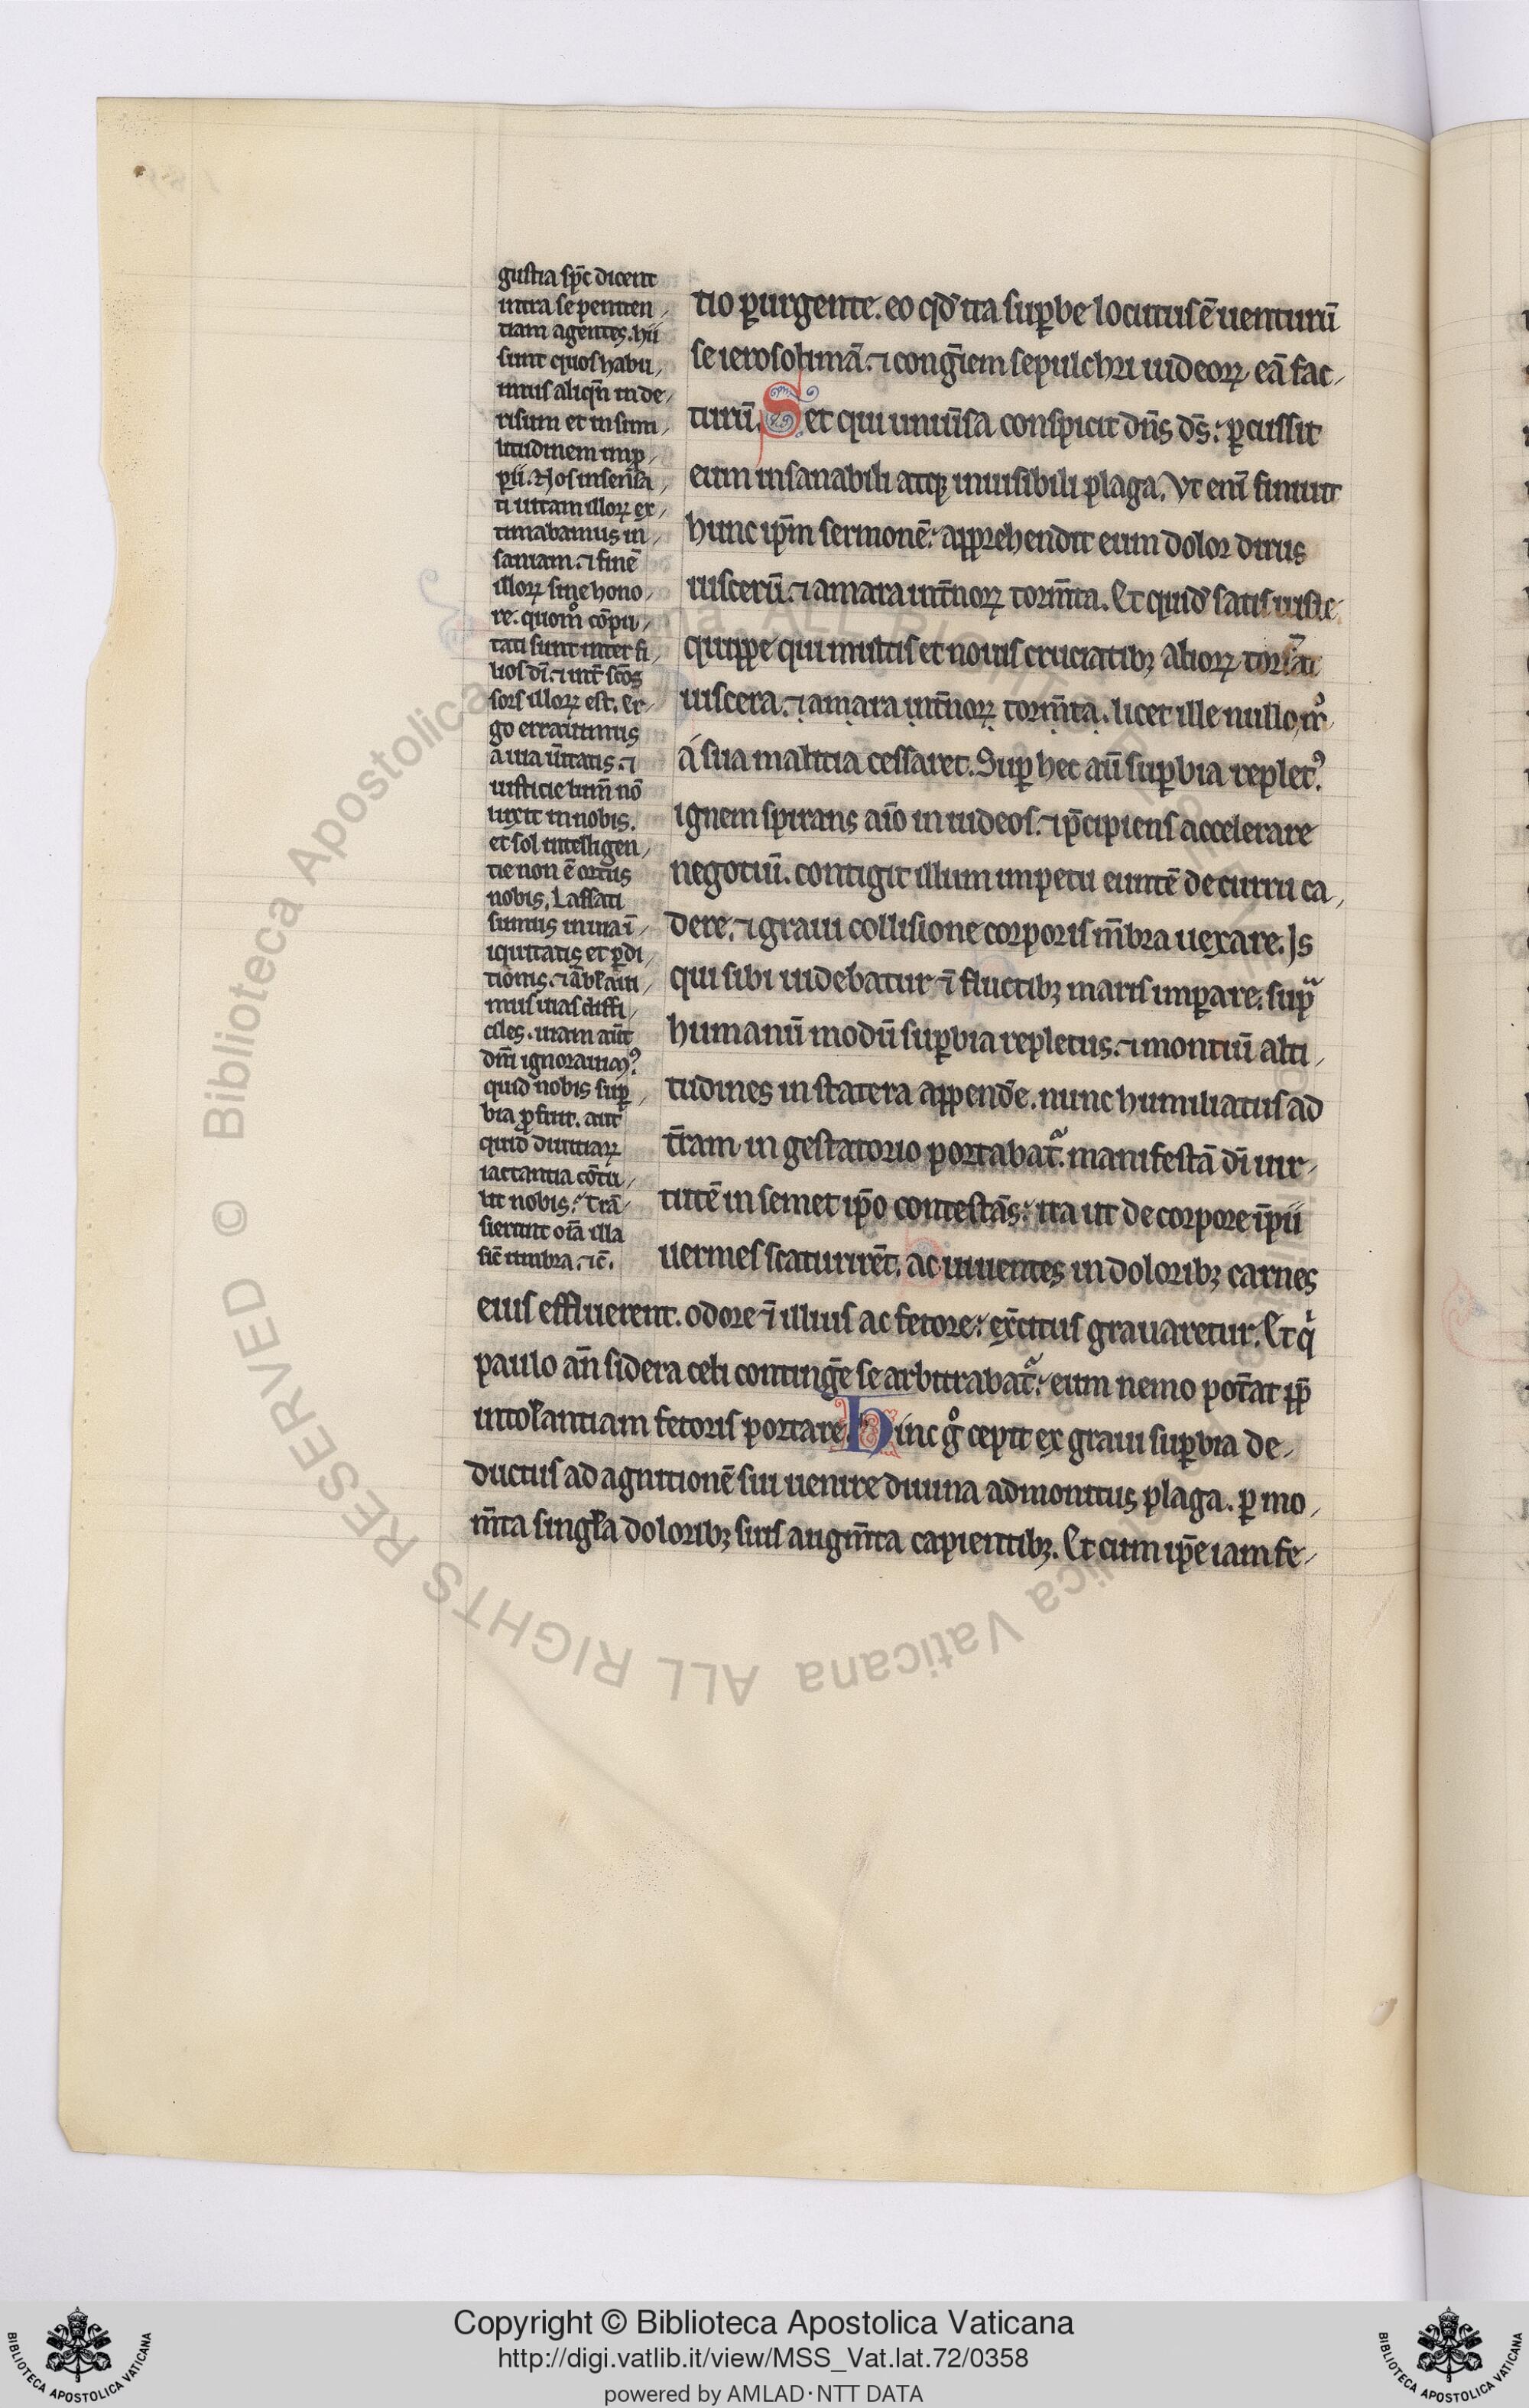 gustia sp̄c dicent
intra se peniten
tiam agentes. hii
sunt quos habu
imus aliqn̄ in de
risum et in simi
litudinem imp
ꝑii. Nos insensa
ti uitam illoꝝ ex
timabamus in
saniam. ⁊ finē
illoꝝ sine hono
re. quom̊ cōpu
tati sunt inter fi
lios dī. ⁊ int̄ scōs
sors illoꝝ est. Er
go errauimus
a uia ūitatis. ⁊
iusticie lum̄ nō
luxit in nobis.
et sol intelligen
tie non ē ortus
nobis. Lassati
sumus in uia ī
iquitatis et ꝑdi
tionis. ⁊ ābl̄aui
mus uias diffi
ciles. uiam aūt
dn̄i ignorauimꝰ.
quid nobis suꝑ
bia ꝓfuit. aut
quid diuitiaꝝ
iactantia cōtu
lit nobis? Trā
sierunt oīa illa
sic̄ umbra. ⁊c̄.
tio ꝑurgente. eo qd̓ ita suꝑbe locutus ē uenturū
se ierosolimā. ⁊ congīem sepulchri iudeoꝝ eā fac
turū. Set qui uniūsa conspicit dn̄s ds̄. ꝑcussit
eum insanabili atqꝫ inuisibili plaga. Vt enī finiuit
hunc ip̄m sermonē. apprehendit eum dolor dirus
uiscerū. ⁊ amara int̄noꝝ torm̄ta. Et quid̓ satis iuste
quippe qui multis et nouis cruciatibꝫ alioꝝ torsat̄
uiscera. ⁊ amara int̄noꝝ torm̄ta. licet ille nullo m̊
a sua malitia cessaret. Suꝑ hec aū suꝑbia repletꝰ.
ignem spirans aīo in iudeos. ⁊ p̄cipiens accelerare
negotiū. contigit illum impetu euntē de curru ca
dere. ⁊ graui collisione corporis m̄bra uexare. Is
qui sibi uidebatur ⁊̄ fluctibꝫ maris imꝑare. supᷓ
humanū modū suꝑbia repletus. ⁊ montiū alti
tudines in statera append̓e. nunc humiliatus ad
t̄ram in gestatorio portabat᷑. manifestā dī uir
tutē in semet ip̄o contestās. ita ut de corpore īpii
uermes scaturirēt. ac uiuentes in doloribꝫ carnes
eius effluerent. odore ⁊̄ illius ac fetore. ex̄citus grauaretur. Et qͥ
paulo an̄ sidera celi conting̓e se arbitrabat᷑. eum nemo pot̄at pp̄
intol̄antiam fetoris portare. Hinc g̊ cepit ex graui suꝑbia de
ductus ad agnitionē sui uenire diuina admonitus plaga. ꝑ mo
m̄ta singl̄a doloribꝫ suis augm̄ta capientibꝫ. Et cum ip̄e iam fe
© Biblioteca Apostolica Vaticana ALL RIGHTS RESERVED
Copyright © Biblioteca Apostolica Vaticana
http://digi.vatlib.it/view/MSS_Vat.lat.72/0358
powered by AMLAD·NTT DATA
BIBLIOTECA APOSTOLICA VATICANA
BIBLIOTECA APOSTOLICA VATICANA